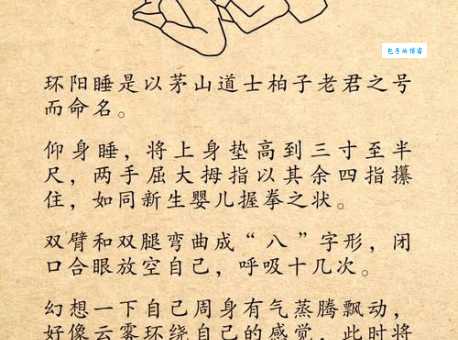 包子的博客
环阳睡是以茅山道士柏子老君之号
而命名。
仰身睡，将上身垫高到三寸至半
尺，两手屈大拇指以其余四指攥
住，如同新生婴儿握拳之状。
双臂和双腿弯曲成“八”字形，闭
口合眼放空自己，呼吸十几次。
幻想一下自己周身有气蒸腾飘动，
好像云雾环绕自己的感觉，此时将